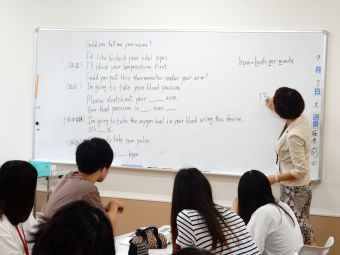 Could you tell me your name?
I'd like to check your vital signs.
I'll check your temperature first.
Could you put this thermometer under your arm?
I'm going to take your blood pressure.
Please stretch out your ____ arm.
Your blood pressure is ____ over ____.
I'm going to take the oxygen level in your blood using this device.
It's ____ %.
take your pulse.
____ bpm.
bpm = beats per minute
9月
日
木